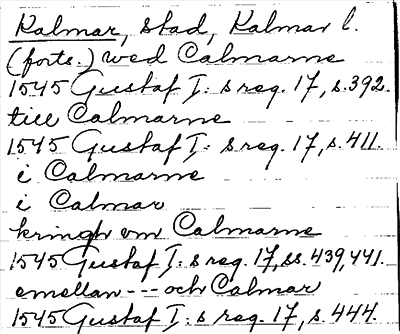 Kalmar, stad, Kalmar l.
(forts.) wed Calmarne
1545 Gustaf I: s reg. 17, s. 392.
till Calmarne
1545 Gustaf I: s reg. 17, s. 411.
i Calmarne
i Calmar
kringh om Calmarne
1545 Gustaf I: s reg. 17, ss. 439, 441.
emellan --- och Calmar
1545 Gustaf I: s reg. 17, s. 444.